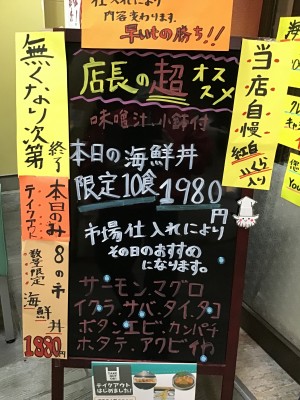 仕入れにより
内容変わります。
早いもの勝ち!!
店長の超オススメ
味噌汁、小鉢付
本日の海鮮丼
限定10食1980円
市場仕入れにより
その日のおすすめ
になります。
サーモン.マグロ
イクラ.サバ.タイ.タコ
ボタンエビ.カンパチ
ホタテ.アクビイカ
無くなり次第終了
本日のみ
テイクアウト
8の市
数量限定
海鮮丼
1,880円
当店自慢
紅白いくら入り
テイクアウト
はじめました!